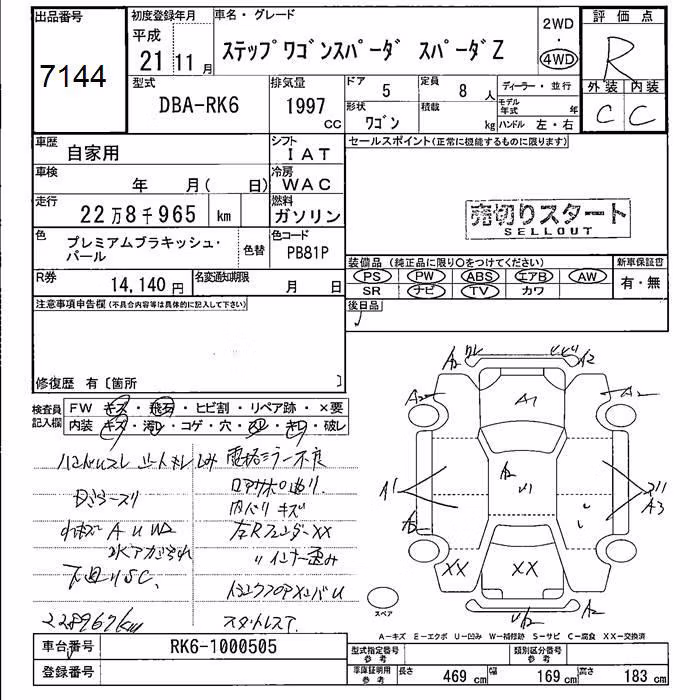 出品番号
7144
初度登録年月
平成
21 11 月
車名・グレード
ステップワゴンスパーダ スパーダZ
2WD
・
4WD
評価点
R
外装 内装
C C
型式
DBA-RK6
排気量
1997
cc
ドア
5
定員
8 人
形状
ワゴン
積載
kg
ディーラー・並行
モデル年式 年
ハンドル 左・右
車歴
自家用
シフト
IAT
車検
年 月( 日)
冷房
WAC
走行
22万8千965 km
燃料
ガソリン
色
プレミアムブラキッシュ・
パール
色替
色コード
PB81P
R券
14,140 円
名変通知期限
月 日
セールスポイント(正常に機能するものに限ります)
売切りスタート
SELLOUT
装備品 (純正品に限り○をつけてください)
新車保証書
PS PW ABS エアB AW
有・無
SR ナビ TV カワ
後日品
注意事項申告欄(不具合内容等は具体的に記入して下さい)
修復歴 有〔箇所 〕
検査員
記入欄
FW キズ・飛石・ヒビ割・リペア跡・×要
内装 キズ・汚レ・コゲ・穴・スレ・キレ・破レ
ハンドルスレ シートキレ しみ
電格ミラー不良
内ハリ キズ
左Rフェンダー XX
〃インナー歪み
下廻りSC.
228967km
A2
A2
A2
A2
A1
A2
A1
A3
XX
XX
A2
スペア
A-キズ E-エクボ U-凹み W-補修跡 S-サビ C-腐食 XX-交換済
車台番号
RK6-1000505
登録番号
型式指定番号
参考
類別区分番号
参考
車庫証明用
参考
長さ 469 cm 幅 169 cm 高さ 183 cm